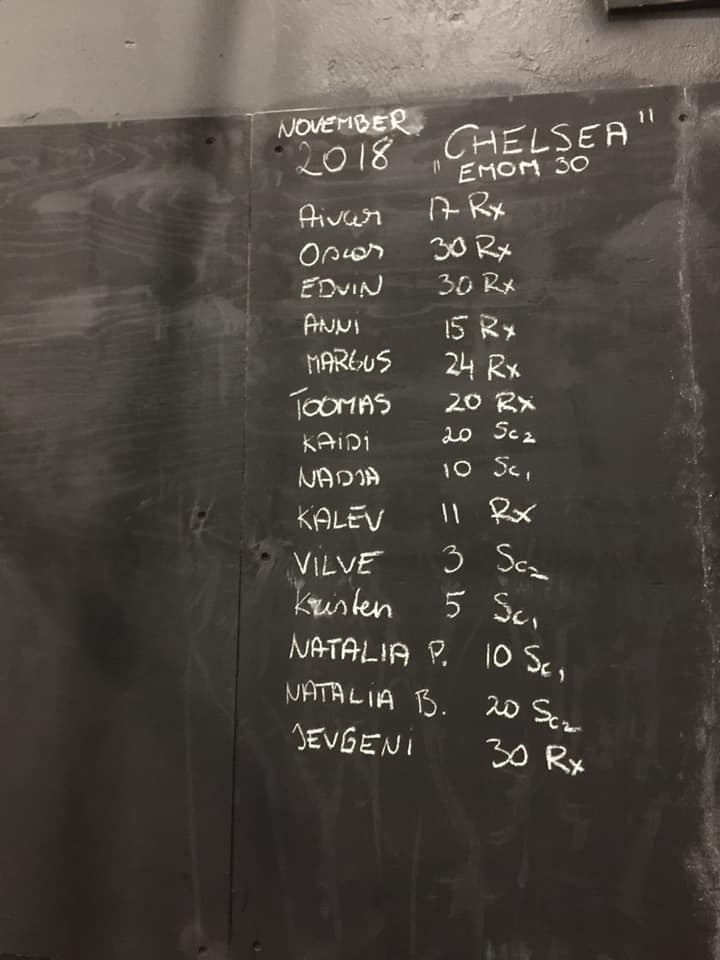 NOVEMBER
2018 "CHELSEA"
EMOM 30
Aivar 17 Rx
Oscar 30 Rx
EDVIN 30 Rx
ANNI 15 Rx
MARGUS 24 Rx
TOOMAS 20 Rx
KAIDI 20 Sc2
NADJA 10 Sc1
KALEV 11 Rx
VILVE 3 Sc2
Kristen 5 Sc1
NATALIA P. 10 Sc1
NATALIA B. 20 Sc2
JEVGENI 30 Rx